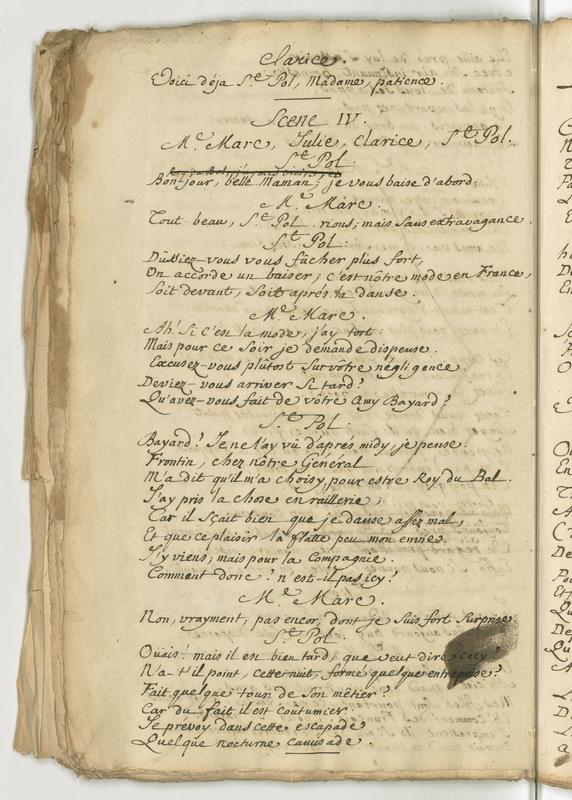 Clarice.
Voici déja S.t Pol, Madame, patience.
Scene IV.
M.e Marc, Julie, Clarice, S.t Pol.
S.t Pol
Bonjour, belle Maman; je vous baise d'abord.
M.e Marc.
Tout beau, S.t Pol. rions; mais sans extravagance.
S.t Pol.
Dussiez-vous vous fâcher plus fort,
On accorde un baiser; c'est nôtre mode en France,
Soit devant, Soit aprés la danse.
M.e Marc.
Ah! Si c'est la mode, j'ay tort:
Mais pour ce Soir je demande dispense.
Excusez-vous plûtost Sur vôtre négligence.
Deviez-vous arriver Si tard?
Qu'avez-vous fait de vôtre Amy Bayard?
S.t Pol.
Bayard? Je ne l'ay vû d'aprés midy, je pense.
Frontin, chez nôtre Général
M'a dit qu'il m'a choisy, pour estre Roy du Bal.
J'ay pris la chose en raillerie;
Car il Sçait bien que je danse assez mal,
Et que ce plaisir là flatte peu mon envie.
J'y viens; mais pour la Compagnie.
Comment donc? n'est-il pas icy?
M.e Marc.
Non, vrayment, pas encor, dont je Suis fort Surprise.
S.t Pol.
Oüais! mais il est bien tard, que veut dire cecy?
N'a-t'il point, cette nuit, formé quelque entreprise?
Fait quelque tour de Son mêtier?
Car du fait il est coûtumier.
Je prévoy dans cette escapade
Quelque nocturne camisade.